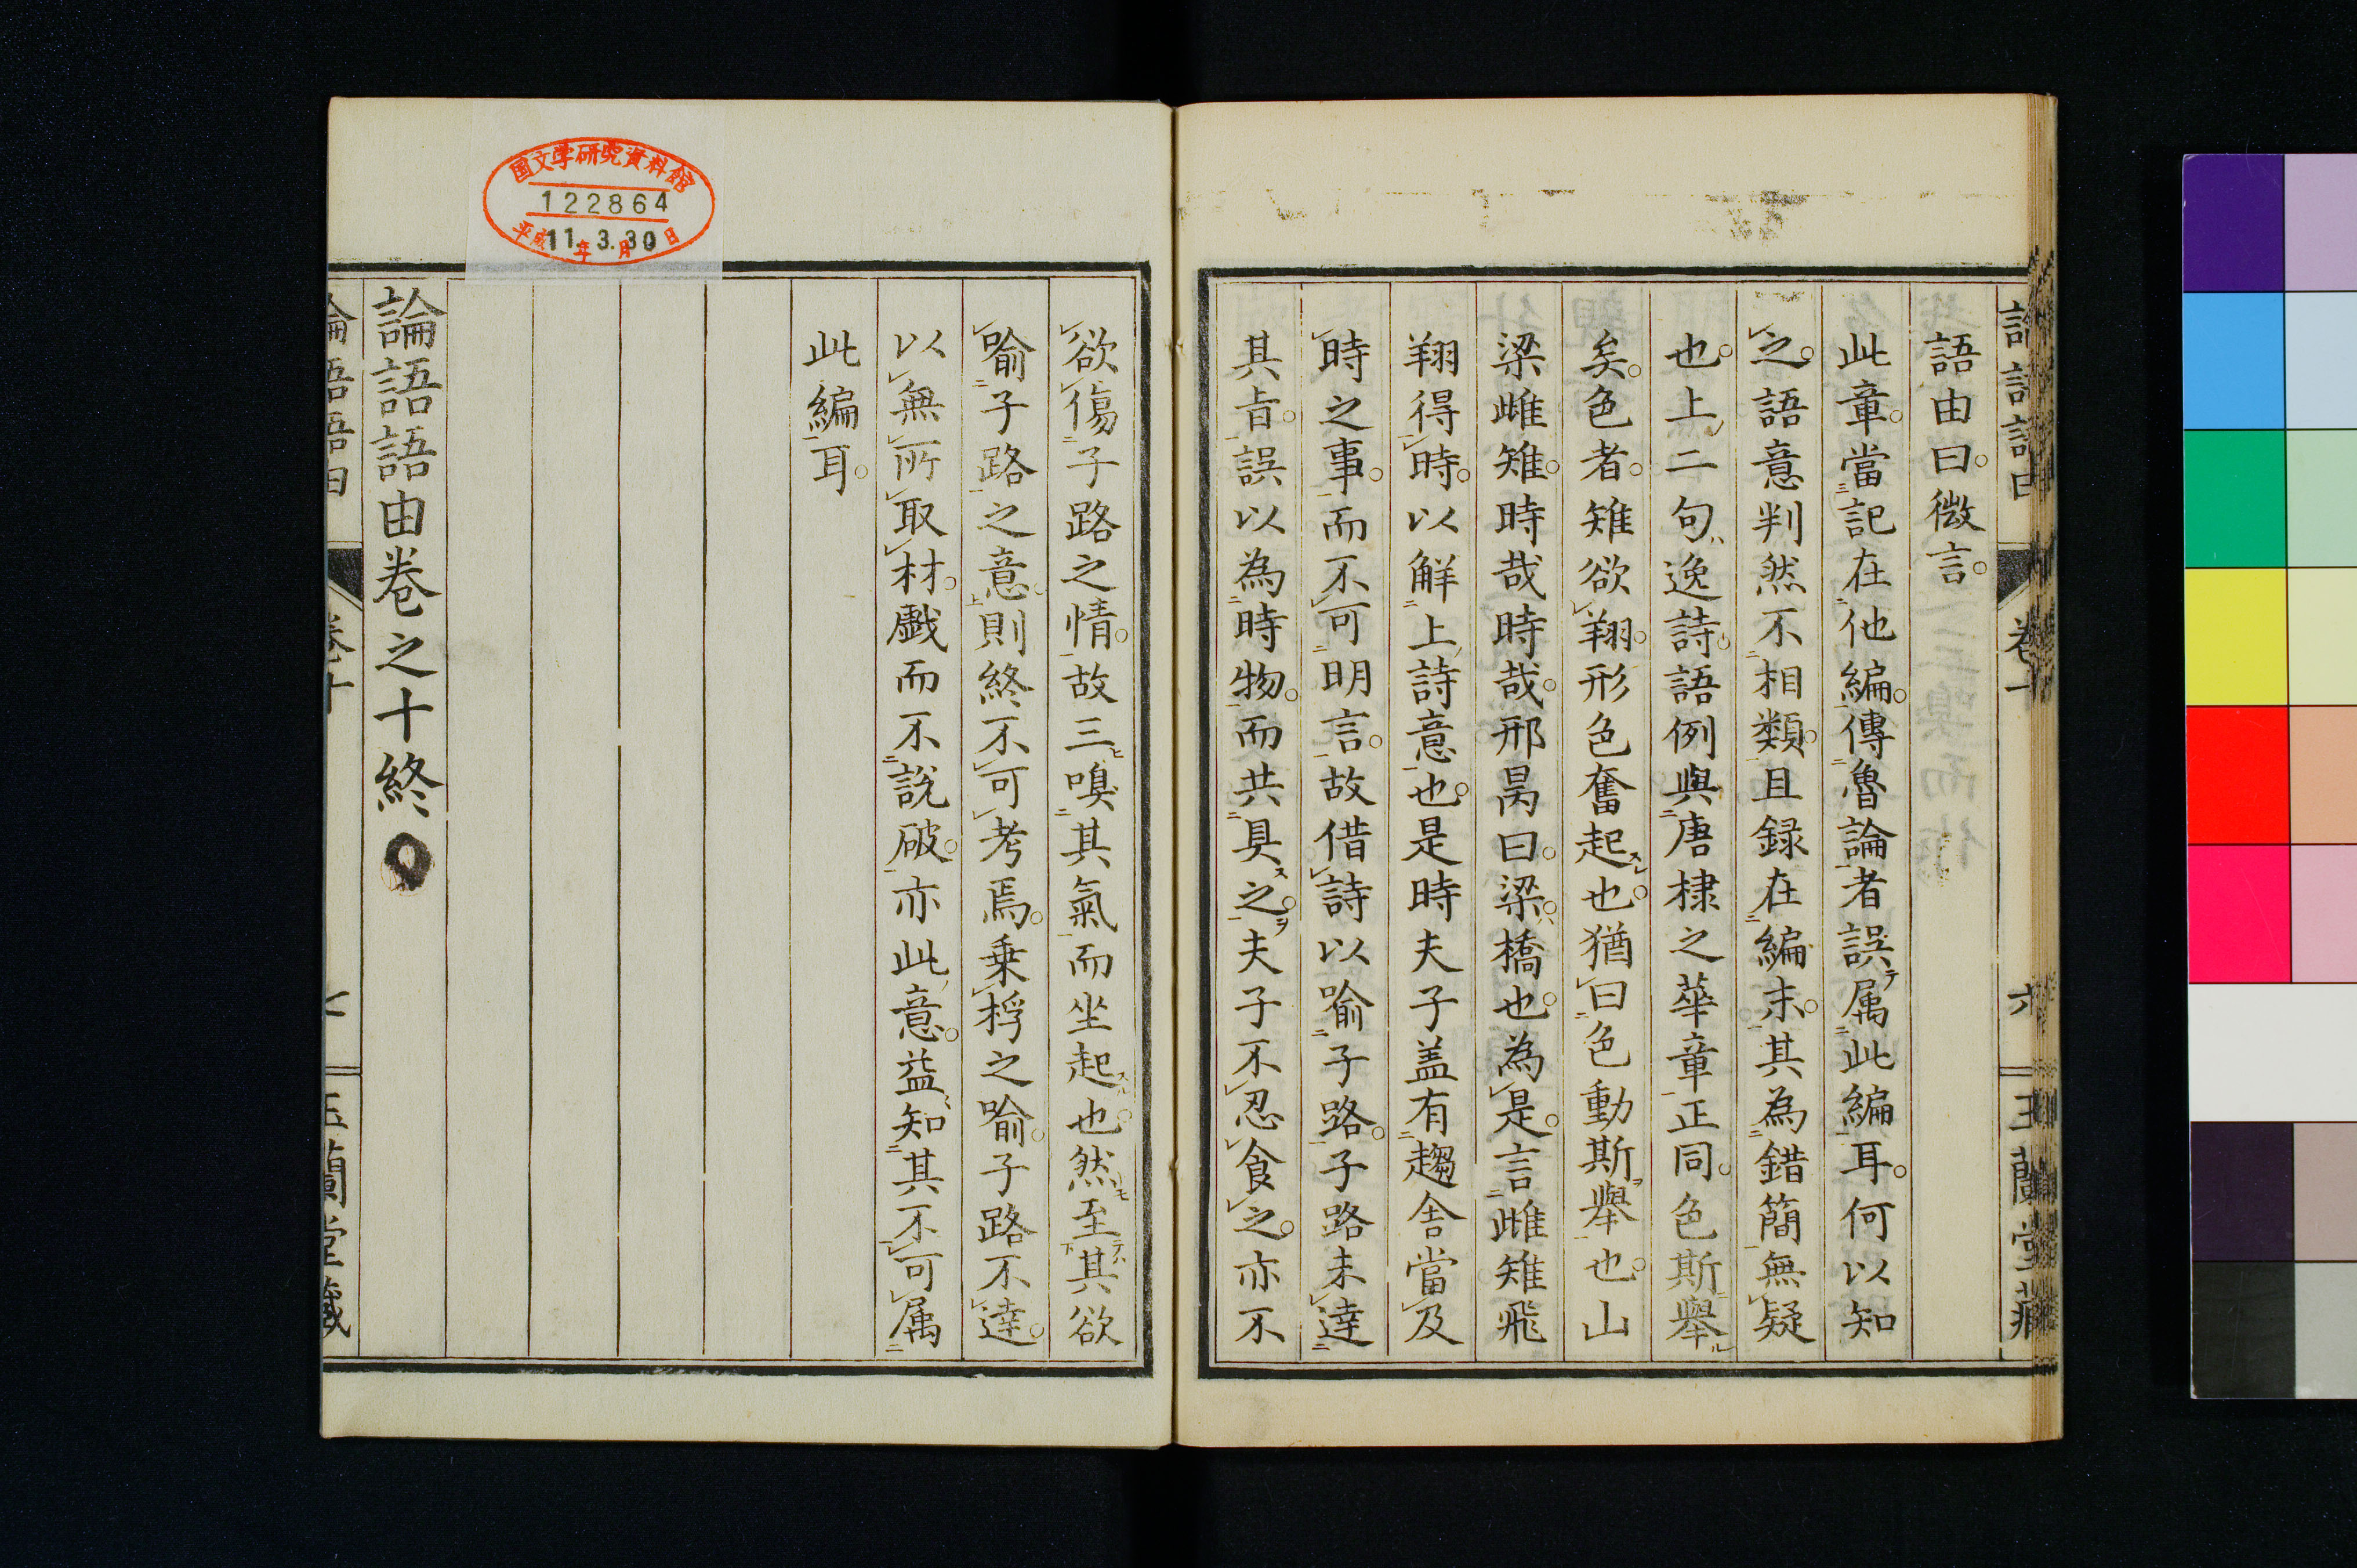 語由曰。微言。
此章。當記在他編。傳魯論者誤属此編耳。何以知
之。語意判然不相類。且録在編末。其為錯簡無疑
也。上二句逸詩。語例與唐棣之華章正同。色斯舉
矣。色者。雉欲翔。形色奮起也。猶曰色動斯舉也。山
梁雌雉。時哉時哉。邢昺曰。梁。橋也。為是。言雌雉飛
翔得時。以解上詩意也。是時夫子盖有趨舎當及
時之事。而不可明言。故借詩以喻子路。子路未達
其旨。誤以為時物。而共具之。夫子不忍食之。亦不
欲傷子路之情。故三嗅其氣而坐起也。然至其欲
喻子路之意則終不可考焉。乗桴之喻。子路不達。
以無所取材。戲而不說破。亦此意。益知其不可属
此編耳。
論語語由卷之十終
国文学研究資料館
122864
平成11年3月30日